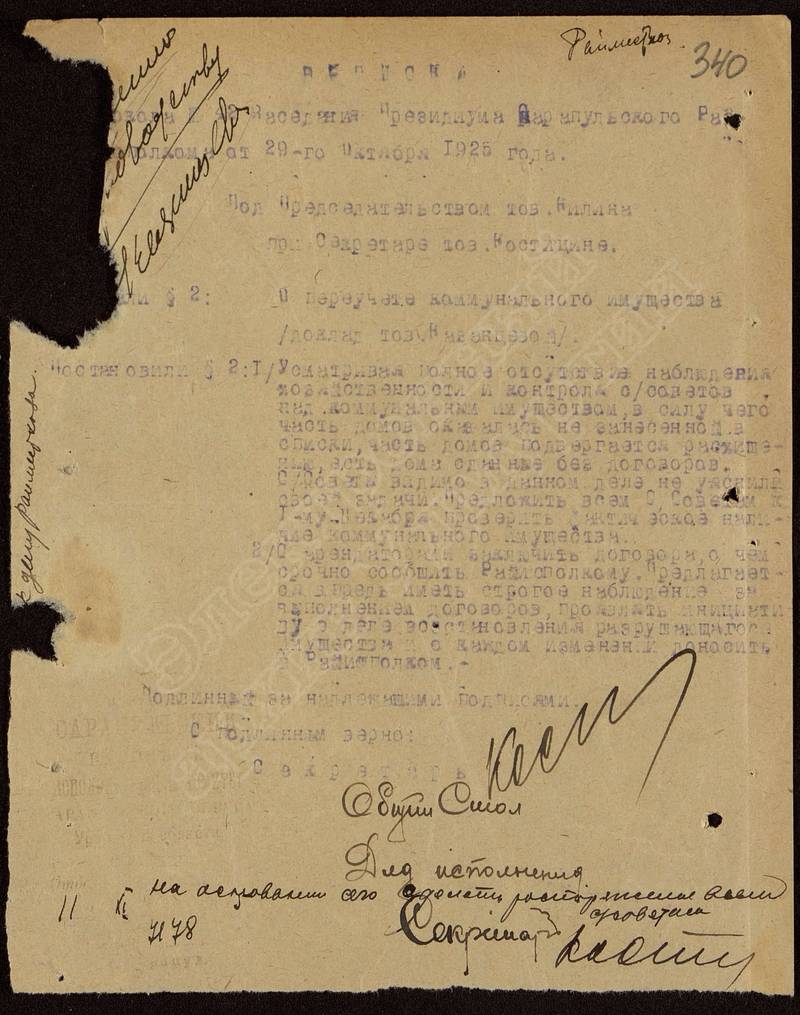 Райместхоз.
340
ВЫПИСКА
Заседания Президиума Сарапульского Рай-
от 29-го Октября 1925 года.
Под Председательством тов. Килина
при Секретаре тов. Костицине.
§ 2: О переучете коммунального имущества
/доклад тов.
Постановили § 2: I/ Усматривая полное отсутствие наблюдения
хозяйственности и контроля с/советов
над коммунальным имуществом, в силу чего
часть домов оказалась не занесенной в
списки, часть домов подвергается расхище-
нию, есть дома сданные без договоров.
С/Советы видимо в данном деле не уяснили
своей задачи. Предложить всем С/Советам к
I-му Декабря проверить фактическое нали-
чие коммунального имущества.
2/ С арендаторами заключить договора, о чем
срочно сообщить Райисполкому. Предлагает-
ся впредь иметь строгое наблюдение за
выполнением договоров, проявлять инициати
ву в деле восстановления разрушающагося
имущества и о каждом изменении доносить
в Райисполком.-
Подлинный за надлежащими подписями.
С подлинным верно:
Секретарь
Общий Стол
Для исполнения
на основании сего сделать распоряжение всем
с/советам
11 XI
7178
Секретарь
к делу райместхоза.